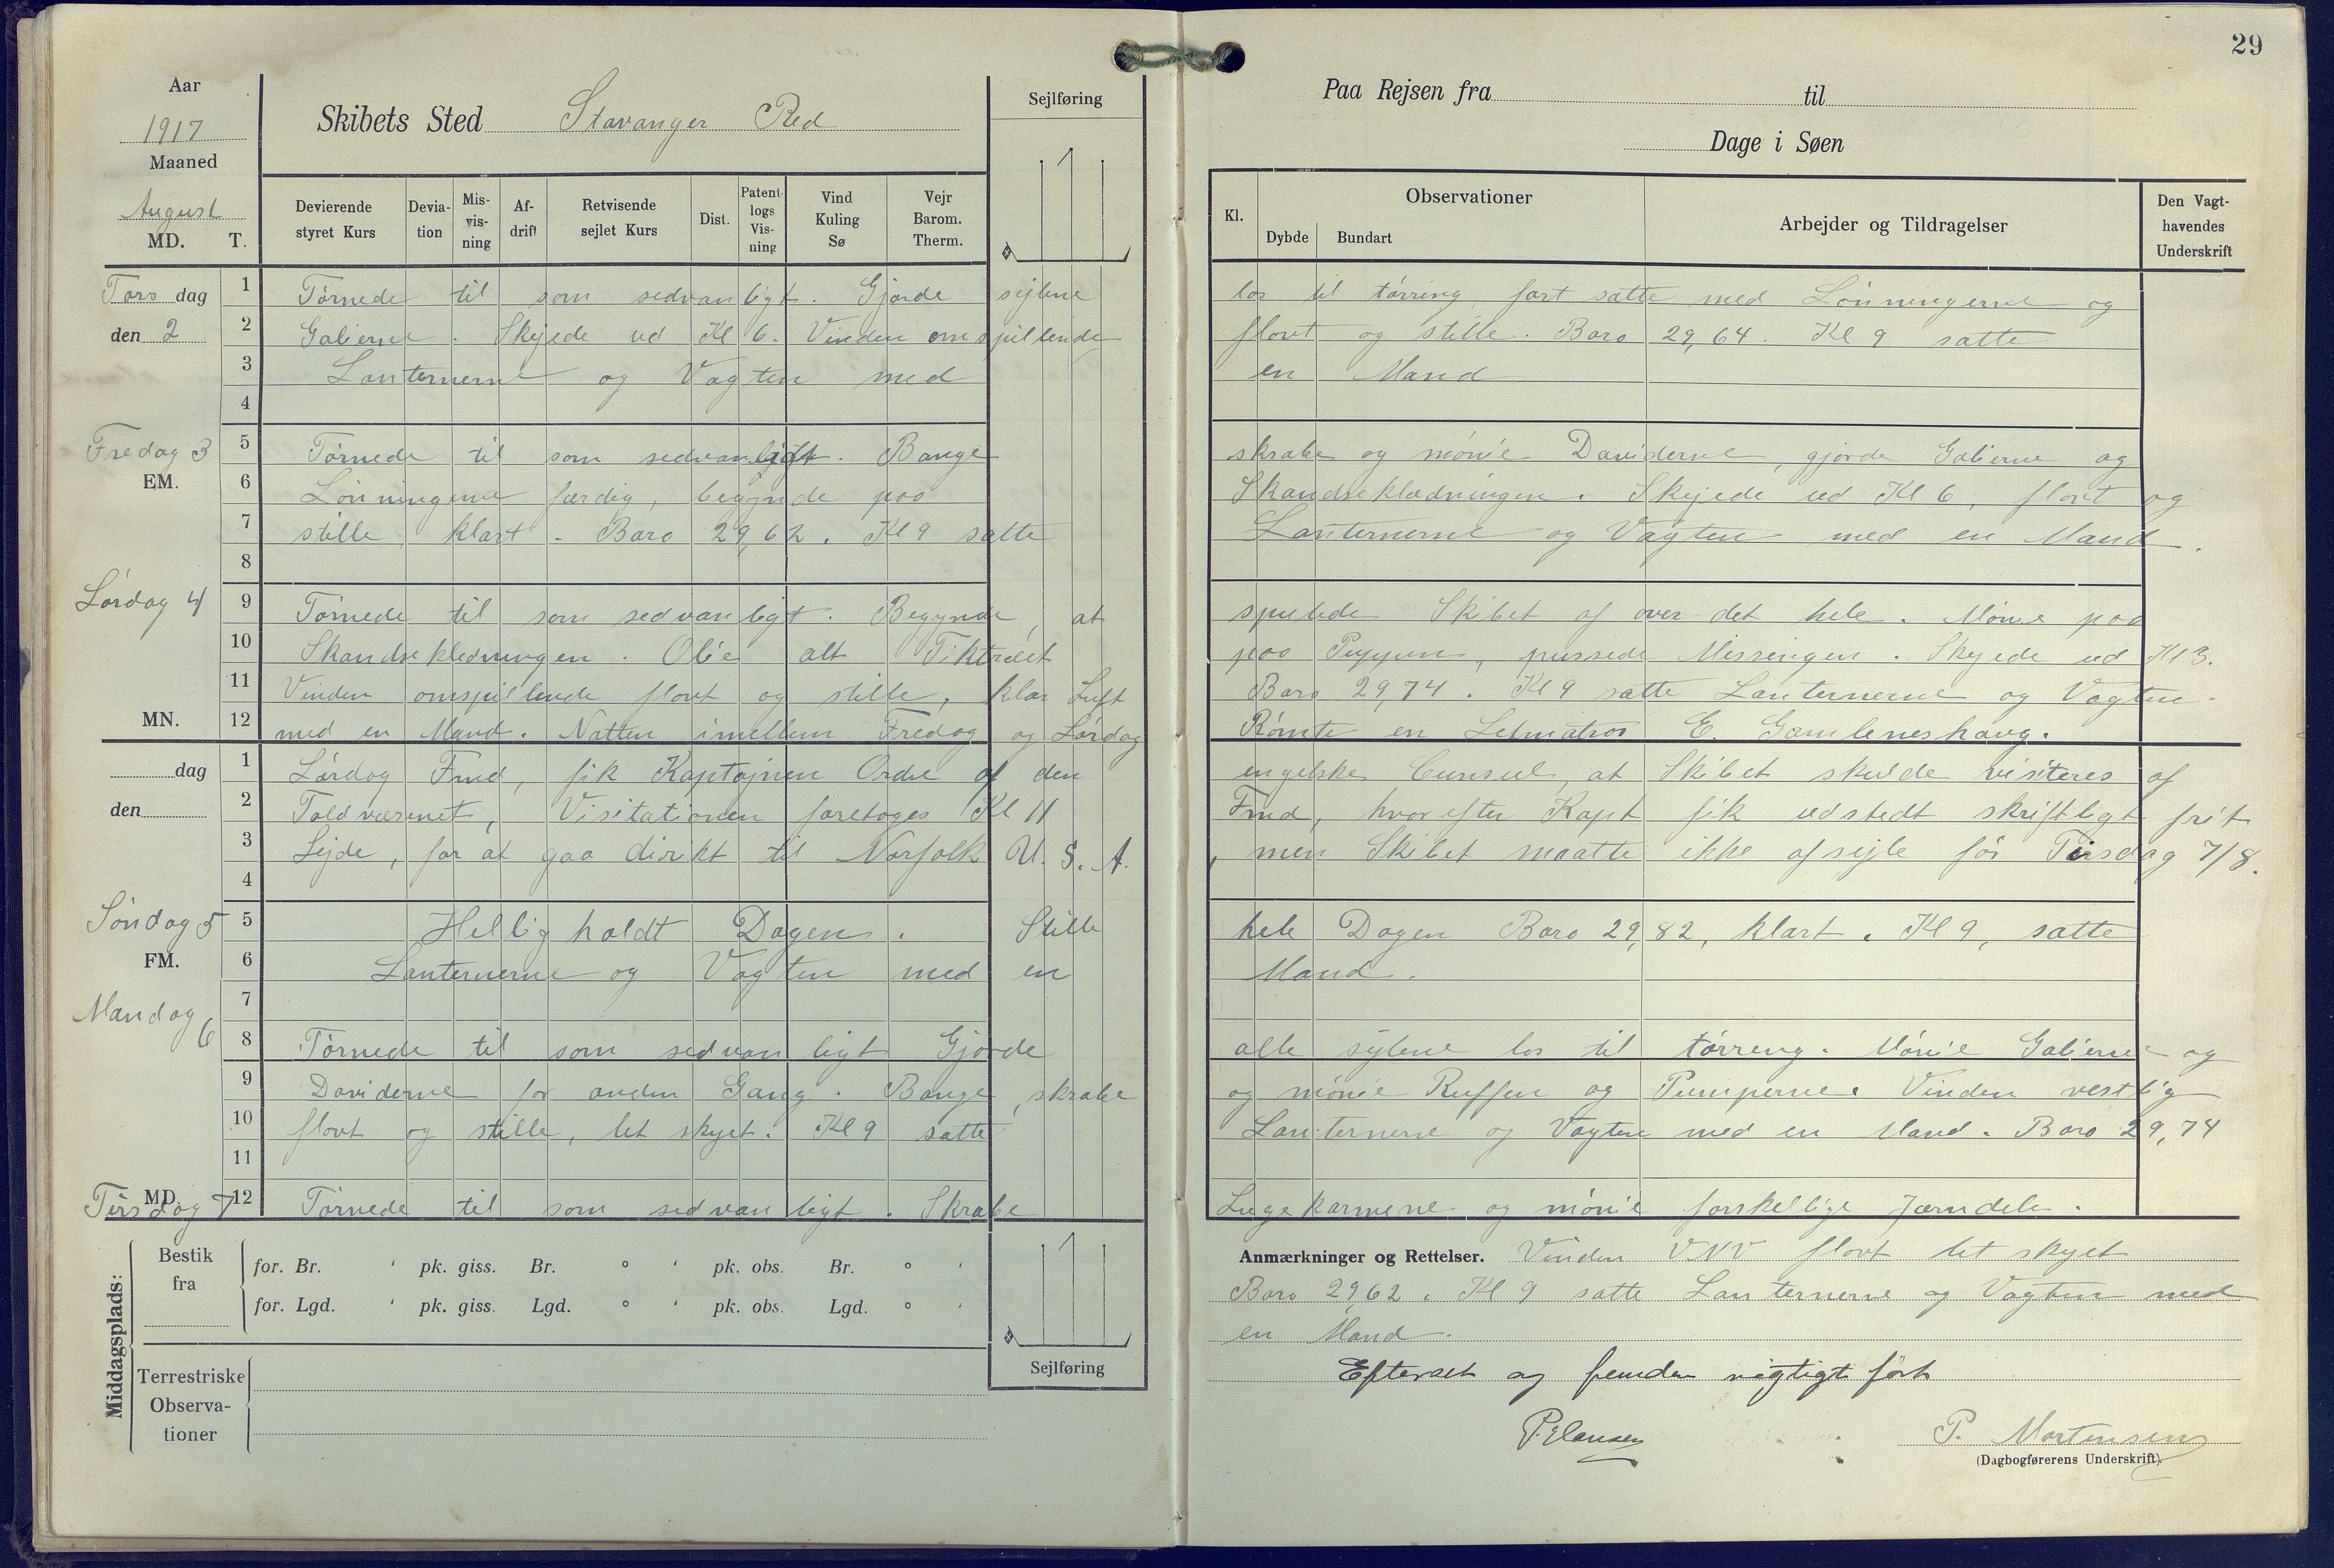 29
Aar
1917
Maaned
August
MD. T.
Skibets Sted Stavanger Red
Sejlføring
Paa Rejsen fra til
Dage i Søen
Devierende styret Kurs
Devia-tion
Mis-vis-ning
Af-drift
Retvisende sejlet Kurs
Dist.
Patent-logs Vis-ning
Vind Kuling Sø
Vejr Barom. Therm.
Kl.
Observationer
Dybde Bundart
Arbejder og Tildragelser
Den Vagt-havendes Underskrift
Tors dag
den 2
1 Törnede til som sedvanligt. Gjorde sejlene los til törring fort satte med Lönningerne og
2 Galierne. Skejede ud Kl 6. Vinden omspillende flovt og stille. Baro 29,64. Kl 9 satte
3 Lanternerne og Vagten med en Mand
4
Fredag 3
EM.
5 Törnede til som sedvanligt. Bange skrabe og mönie Daviderne, gjorde Galierne og
6 Lönningerne færdig, begynde paa Skandseklædningen. Skejede ud Kl 6, flovt og
7 stille, klart. Baro 29,62. Kl 9 satte Lanternerne og Vagten med en Mand.
8
Lördag 4
9 Törnede til som sedvanligt. Begynde, at spulede Skibet af over det hele. Mönie paa
10 Skandsekledningen. Olie alt Tiktræet paa Puppen, pussede Missingen. Skejede ud Kl 3.
11 Vinden omspillende flovt og stille, klar Luft Baro 29,74. Kl 9 satte Lanternerne og Vagten
MN.
12 med en Mand. Natten imellem Fredag og Lördag Römte en Letmatros E. Gamleneshaug.
dag
den
1 Lördag Fmd, fik Kaptajnen Ordre af den engelske Cunsul, at Skibet skulde visiteres af
2 Toldværnet, Visitationen foretoges Kl 11 Fmd, hvorefter Kapt fik udstedt skriftligt frit
3 Lejde, for at gaa dirkt til Norfolk U.S.A., men Skibet maatte ikke afsejle för Tirsdag 7/8.
4
Söndag 5
FM.
5 Hellig holdt Dagen. Stille hele Dagen Baro 29,82, klart. Kl 9, satte
6 Lanternerne og Vagten med en Mand.
7
Mandag 6
8 Törnede til som sedvanligt Gjorde alle sejlene los til törreng. Mönie Galierne og
9 Daviderne for anden Gang. Bange, skrabe og mönie Ruffen og Pumperne. Vinden vestlig
10 flovt og stille, let skyet. Kl 9 satte Lanternerne og Vagten med en Mand. Baro 29,74
11
MD.
Tirsdag 7
12 Törnede til som sedvanligt. Skrabe Lugekarmene og mönie forskellige Jærndele.
Middagsplads:
Bestik fra
for. Br. ' pk. giss. Br. ° ' pk. obs. Br. ° '
for. Lgd. ' pk. giss. Lgd. ° ' pk. obs. Lgd. ° '
Sejlføring
Terrestriske Observa-tioner
Anmærkninger og Rettelser. Vinden VNV flovt let skyet
Baro 29,62. Kl 9 satte Lanternerne og Vagten med
en Mand.
Efterset og funden rigtigt fört
P. Hansen
P. Mortensen
(Dagbogførerens Underskrift).